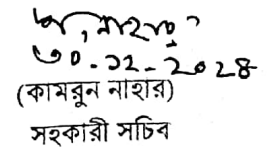 ৩০-১২-২০২৪
(কামরুন নাহার)
সহকারী সচিব